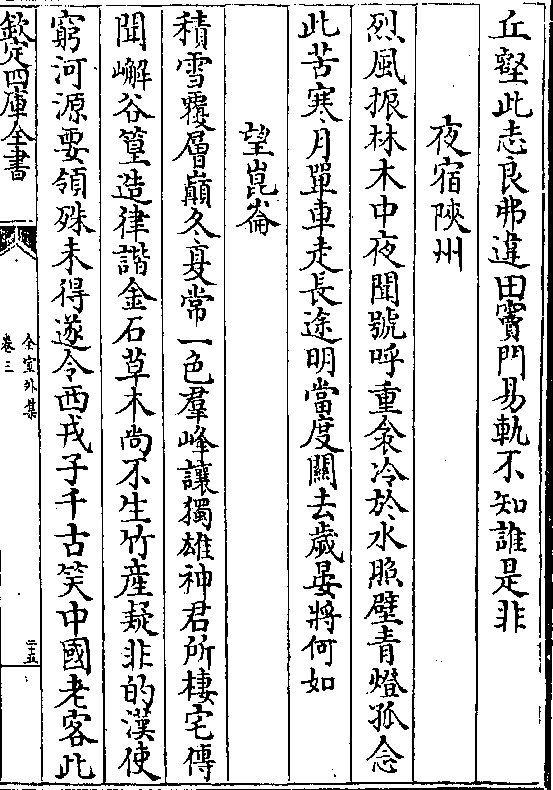 丘壑此志良弗違田竇門易軌不知誰是非
夜宿陜州
烈風振林木中夜聞號呼重衾冷於水照壁青燈孤念
此苦寒月單車走長途明當度關去歲晏將何如
望崑崙
積雪覆層巔冬夏常一色羣峰讓獨雄神君所棲宅傳
聞嶰谷篁造律諧金石草木尚不生竹産疑非的漢使
窮河源要領殊未得遂令西戎子千古笑中國老客此
欽定四庫全書
全室外集
卷三
二十五